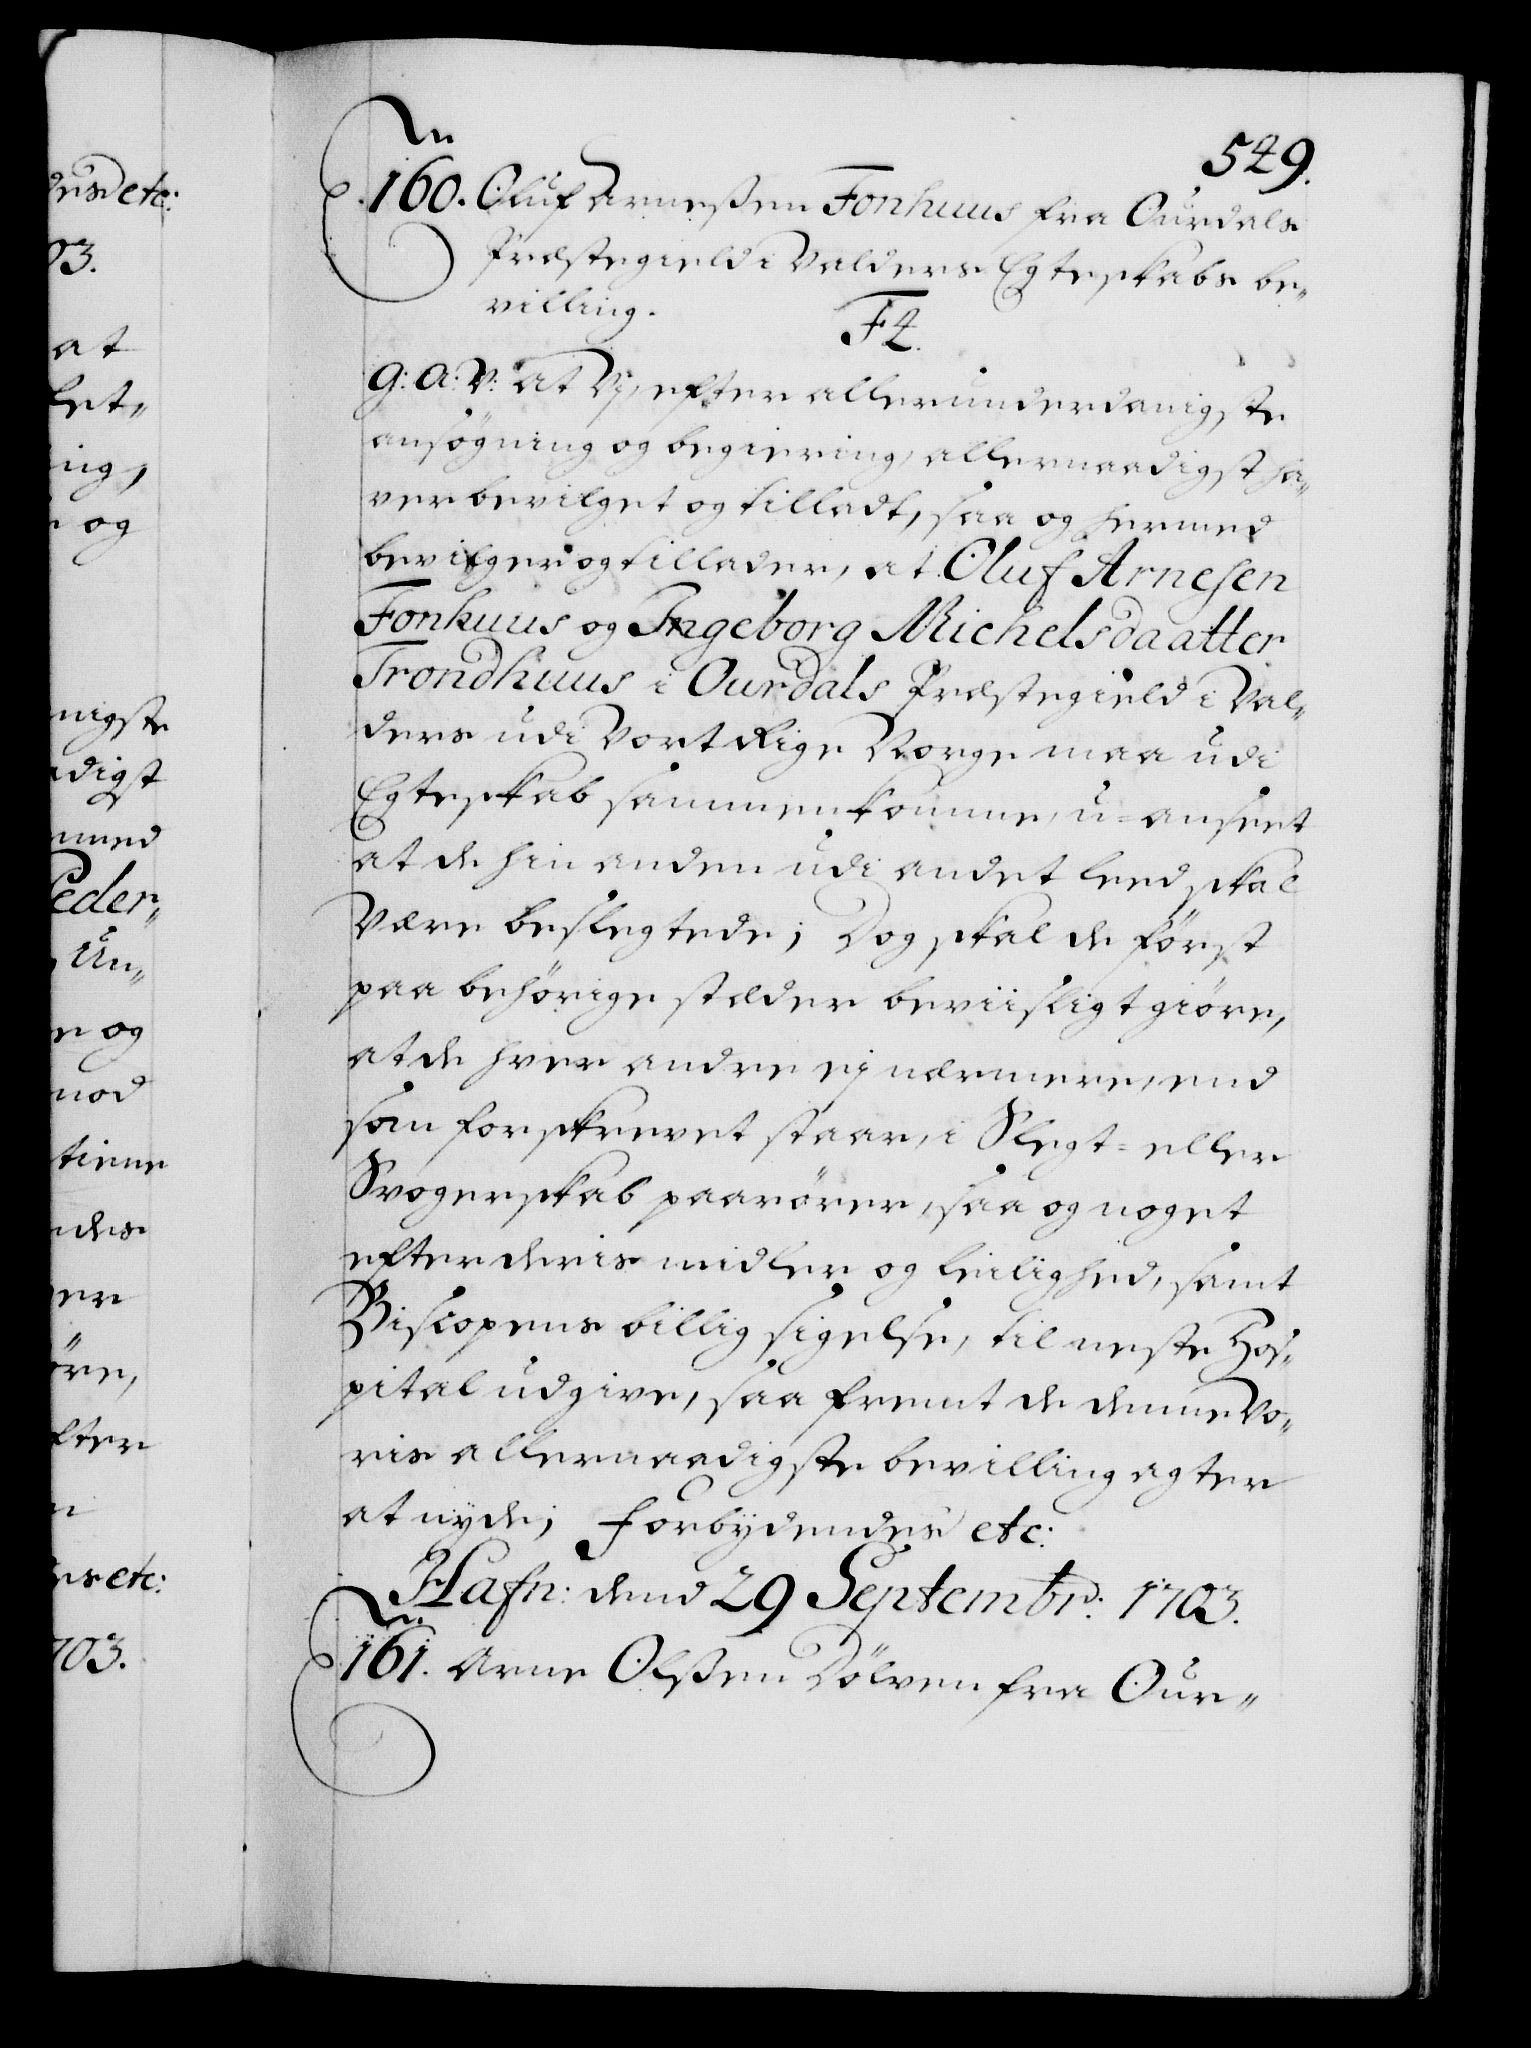 dus etc:
03.
at
let„
ing,
og
nigste
adigst
rmed
Peder„
Un„
e og
mod
tiene
ndes
er
öre,
fter
es etc:
703.
549.
N
160. Oluf Arneßen Fonhuus fra Ourdals
Præstegield i Valders Egteskabs be„
villing.
F4.
G: A: V: at Vj, efter allerunderdanigste
ansögning og begiering, allernaadigst ha„
ver bevilget og tilladt, saa og hermed
bevilger og tillader, at Oluf Arnesen
Fonhuus og Ingeborg Michelsdaatter
Trondhuus i Ourdals Præstegield i Val„
ders udi Vort Rige Norge maa udi
Egteskab sammenkomme, u-anseet
at de hin anden udi andet leed skal
være beslegtede; Dog skal de först
paa behörige stæder beviisligt giöre,
at de hver andre ej nærmere, end
som forskrevet staar, i Slegt- eller
Svogerskab paarörer, saa og noget
efter deris midler og leilighed, samt
Biscopens billig sigelse, til neste Hos„
pital udgive, saa fremt de denne Vo„
ris allernaadigste bevilling agter
at nyde; Forbydendes etc:
Hafn: dend 29 Septembr: 1703.
N
161. Arne Olßen Dölven fra Our„